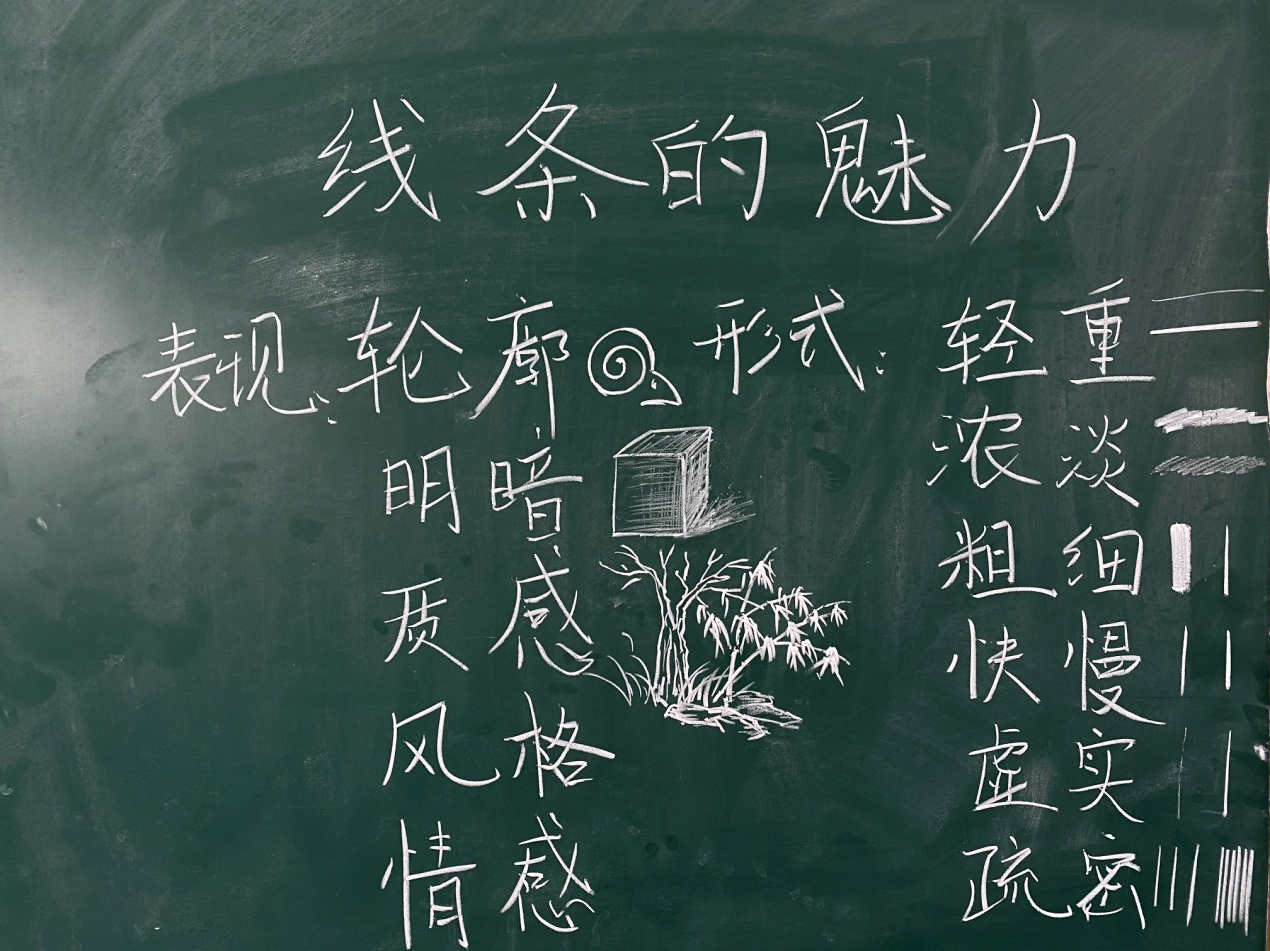 线条的魅力
表现:轮廓
明暗
质感
风格
情感
形式:轻重
浓淡
粗细
快慢
虚实
疏密